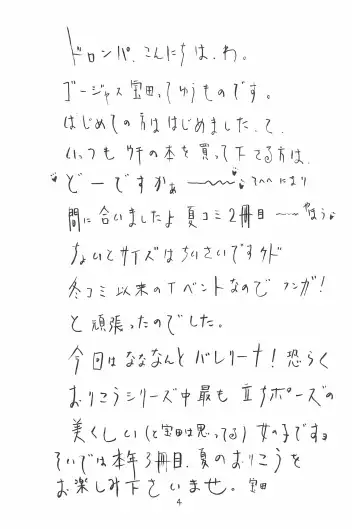 ドロンパ、こんにちは、わ。
ゴージャス宝田ってゆうものです。
はじめての方ははじめました、て、
いつもウチの本を買って下さる方は、
どーですかぁ〜〜 てへへ にまり
間に合いましたよ夏コミ2冊目〜〜やほう♪
ちょいとサイズはちいさいですケド
冬コミ以来のイベントなので フンガ!
と頑張ったのでした。
今回はなななんとバレリーナ!恐らく
おりこうシリーズ中最も立ちポーズの
美しくしい(と宝田は思ってる)女の子です。
そいでは本年3冊目、夏のおりこうを
お楽しみ下さいませ。宝田
4